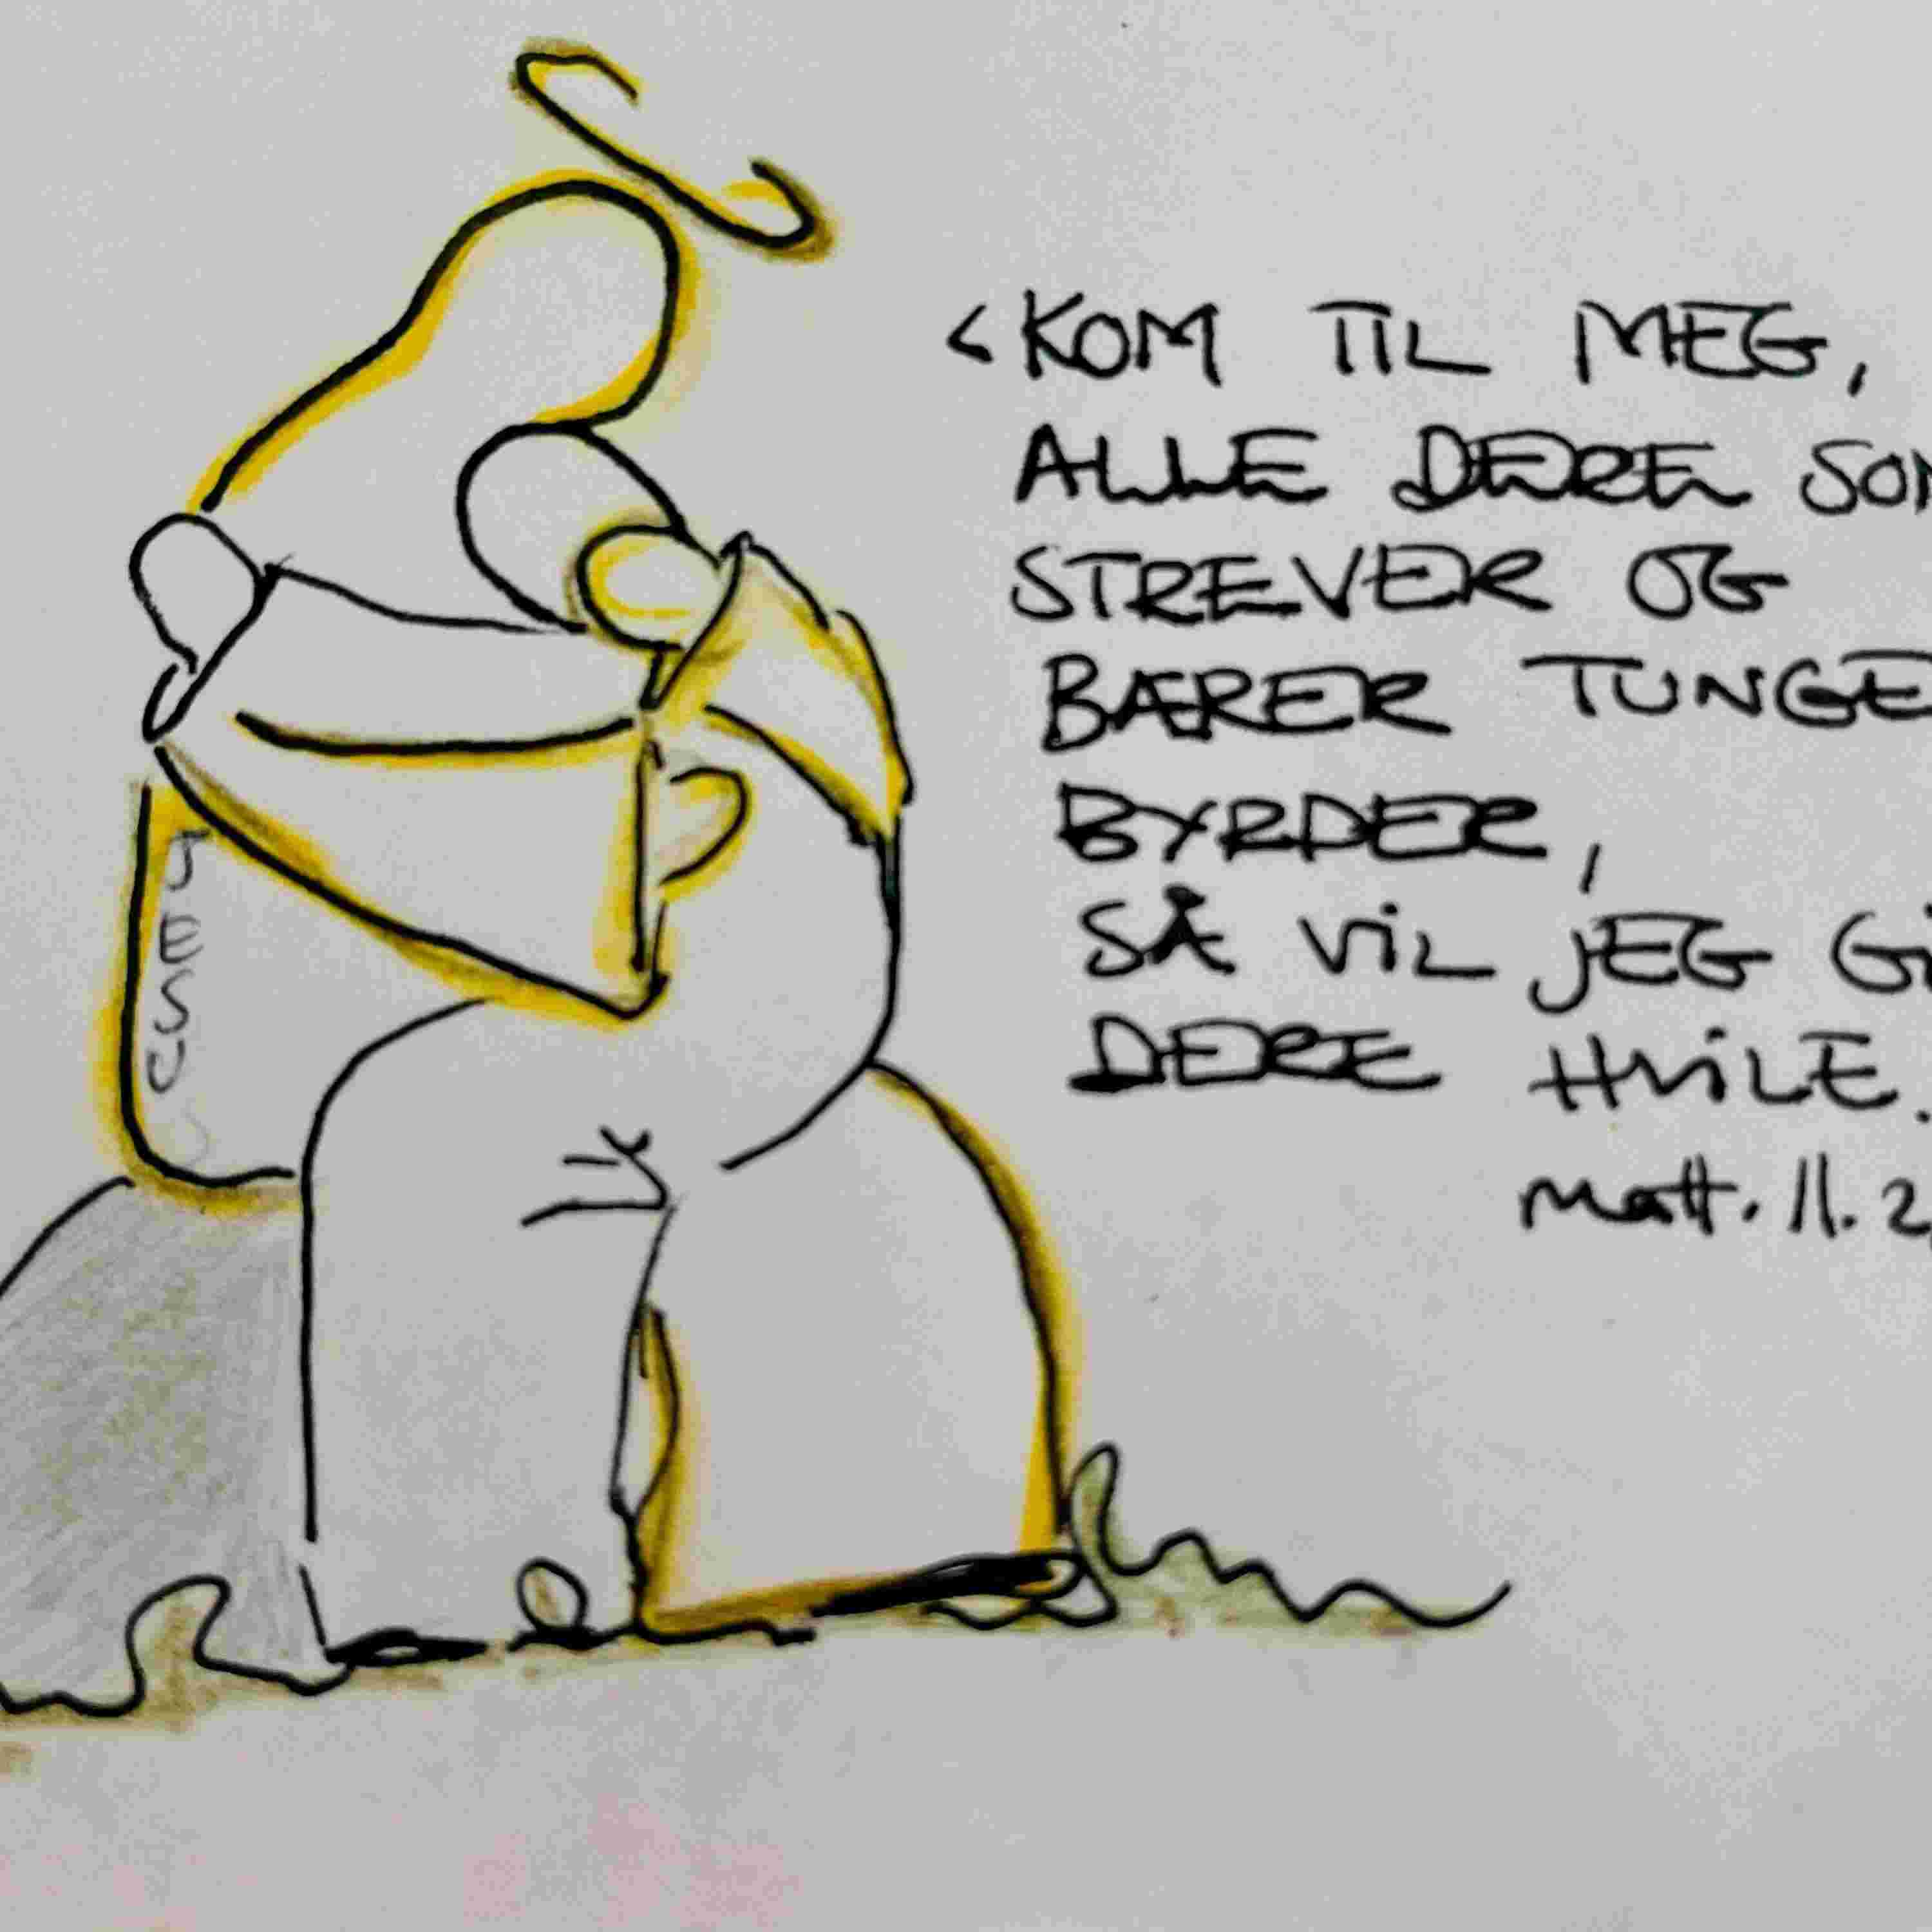 J
E
S
U
S
<KOM TIL MEG,
ALLE DERE SOM
STREVER OG
BÆRER TUNGE
BYRDER,
SÅ ViL jEG Gi
DERE HViLE.
Matt. 11. 2